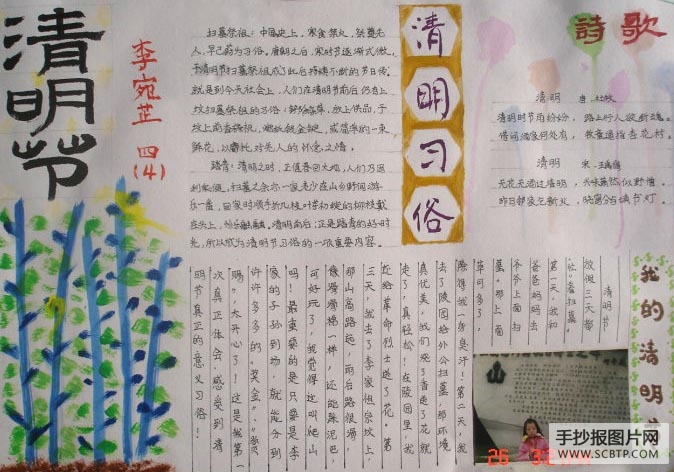 清明节
李宛芷 四(4)
扫墓祭祖：中国史上，寒食禁火，祭奠先
人，早已蔚为习俗。唐朝之后，寒食节逐渐式微，
于清明节扫墓祭祖成了此后持续不断的节日传
就是到今天社会上，人们在清明节前后仍有上
坟扫墓祭祖的习俗：
花，以寄托对先人的怀念之情。
踏青：清明之时，正值春回大地，人们乃因
利乘便，扫墓之余亦一家老少在山乡野间游
乐一番，回家时顺手折几枝叶芽初绽的柳枝戴
在头上，怡乐融融。清明前后正是踏青的好时
光，所以成为清明节习俗的一项重要内容。
清明习俗
诗歌
清明 唐 杜牧
清明时节雨纷纷，路上行人欲断魂。
借问酒家何处有，牧童遥指杏花村。
清明 宋 王禹偁
无花无酒过清明，兴味萧然似野僧。
昨日邻家乞新火，晓窗分与读书灯。
我的清明节
清明节
放假三天都
第一天，我和
爸爸妈妈去
爷爷上面扫
墓。那上面
草可多了，
除得我一身臭汗！第二天，我
去了陵园给外公扫墓，那环境
真优美，我们烧了香送了花就
走了，真轻松！在陵园里我
还给革命烈士送了花。第
三天，我去了李家祖宗坟上，
那山高路远，雨后路很滑，
像滑滑梯一样，还能踩泥巴，
可好玩了，我觉得这叫爬山
吗！最重要的是只要是李
家的子孙到场，就能分到
许许多多的“奖金”、“奖
赐”，太开心了！这是我第一
次真正体会、感受到清
明节真正的意义习俗！
手抄报图片网
WWW.SCBTP.COM